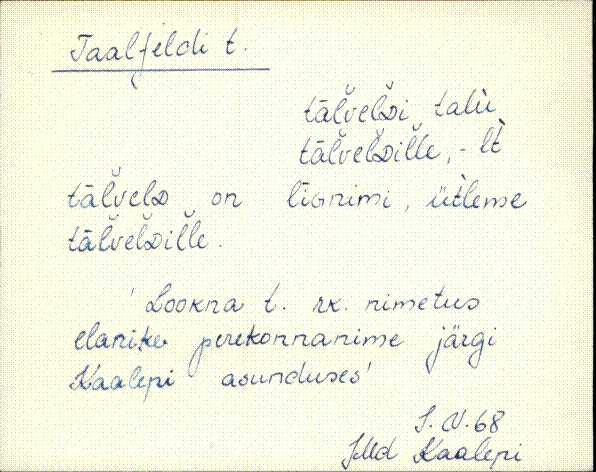 Taalfeldi t.
tāľveľᴅi talù
tāľveľᴅiľľe, -lt̀
tāľvelᴅ on līGnimi, üt̀leme
tāľveľᴅiľľe.
' Lookna t. rk. nimetus
elanike perekonnanime järgi
Kaalepi asunduses'
J. V. 68
JMd Kaalepi